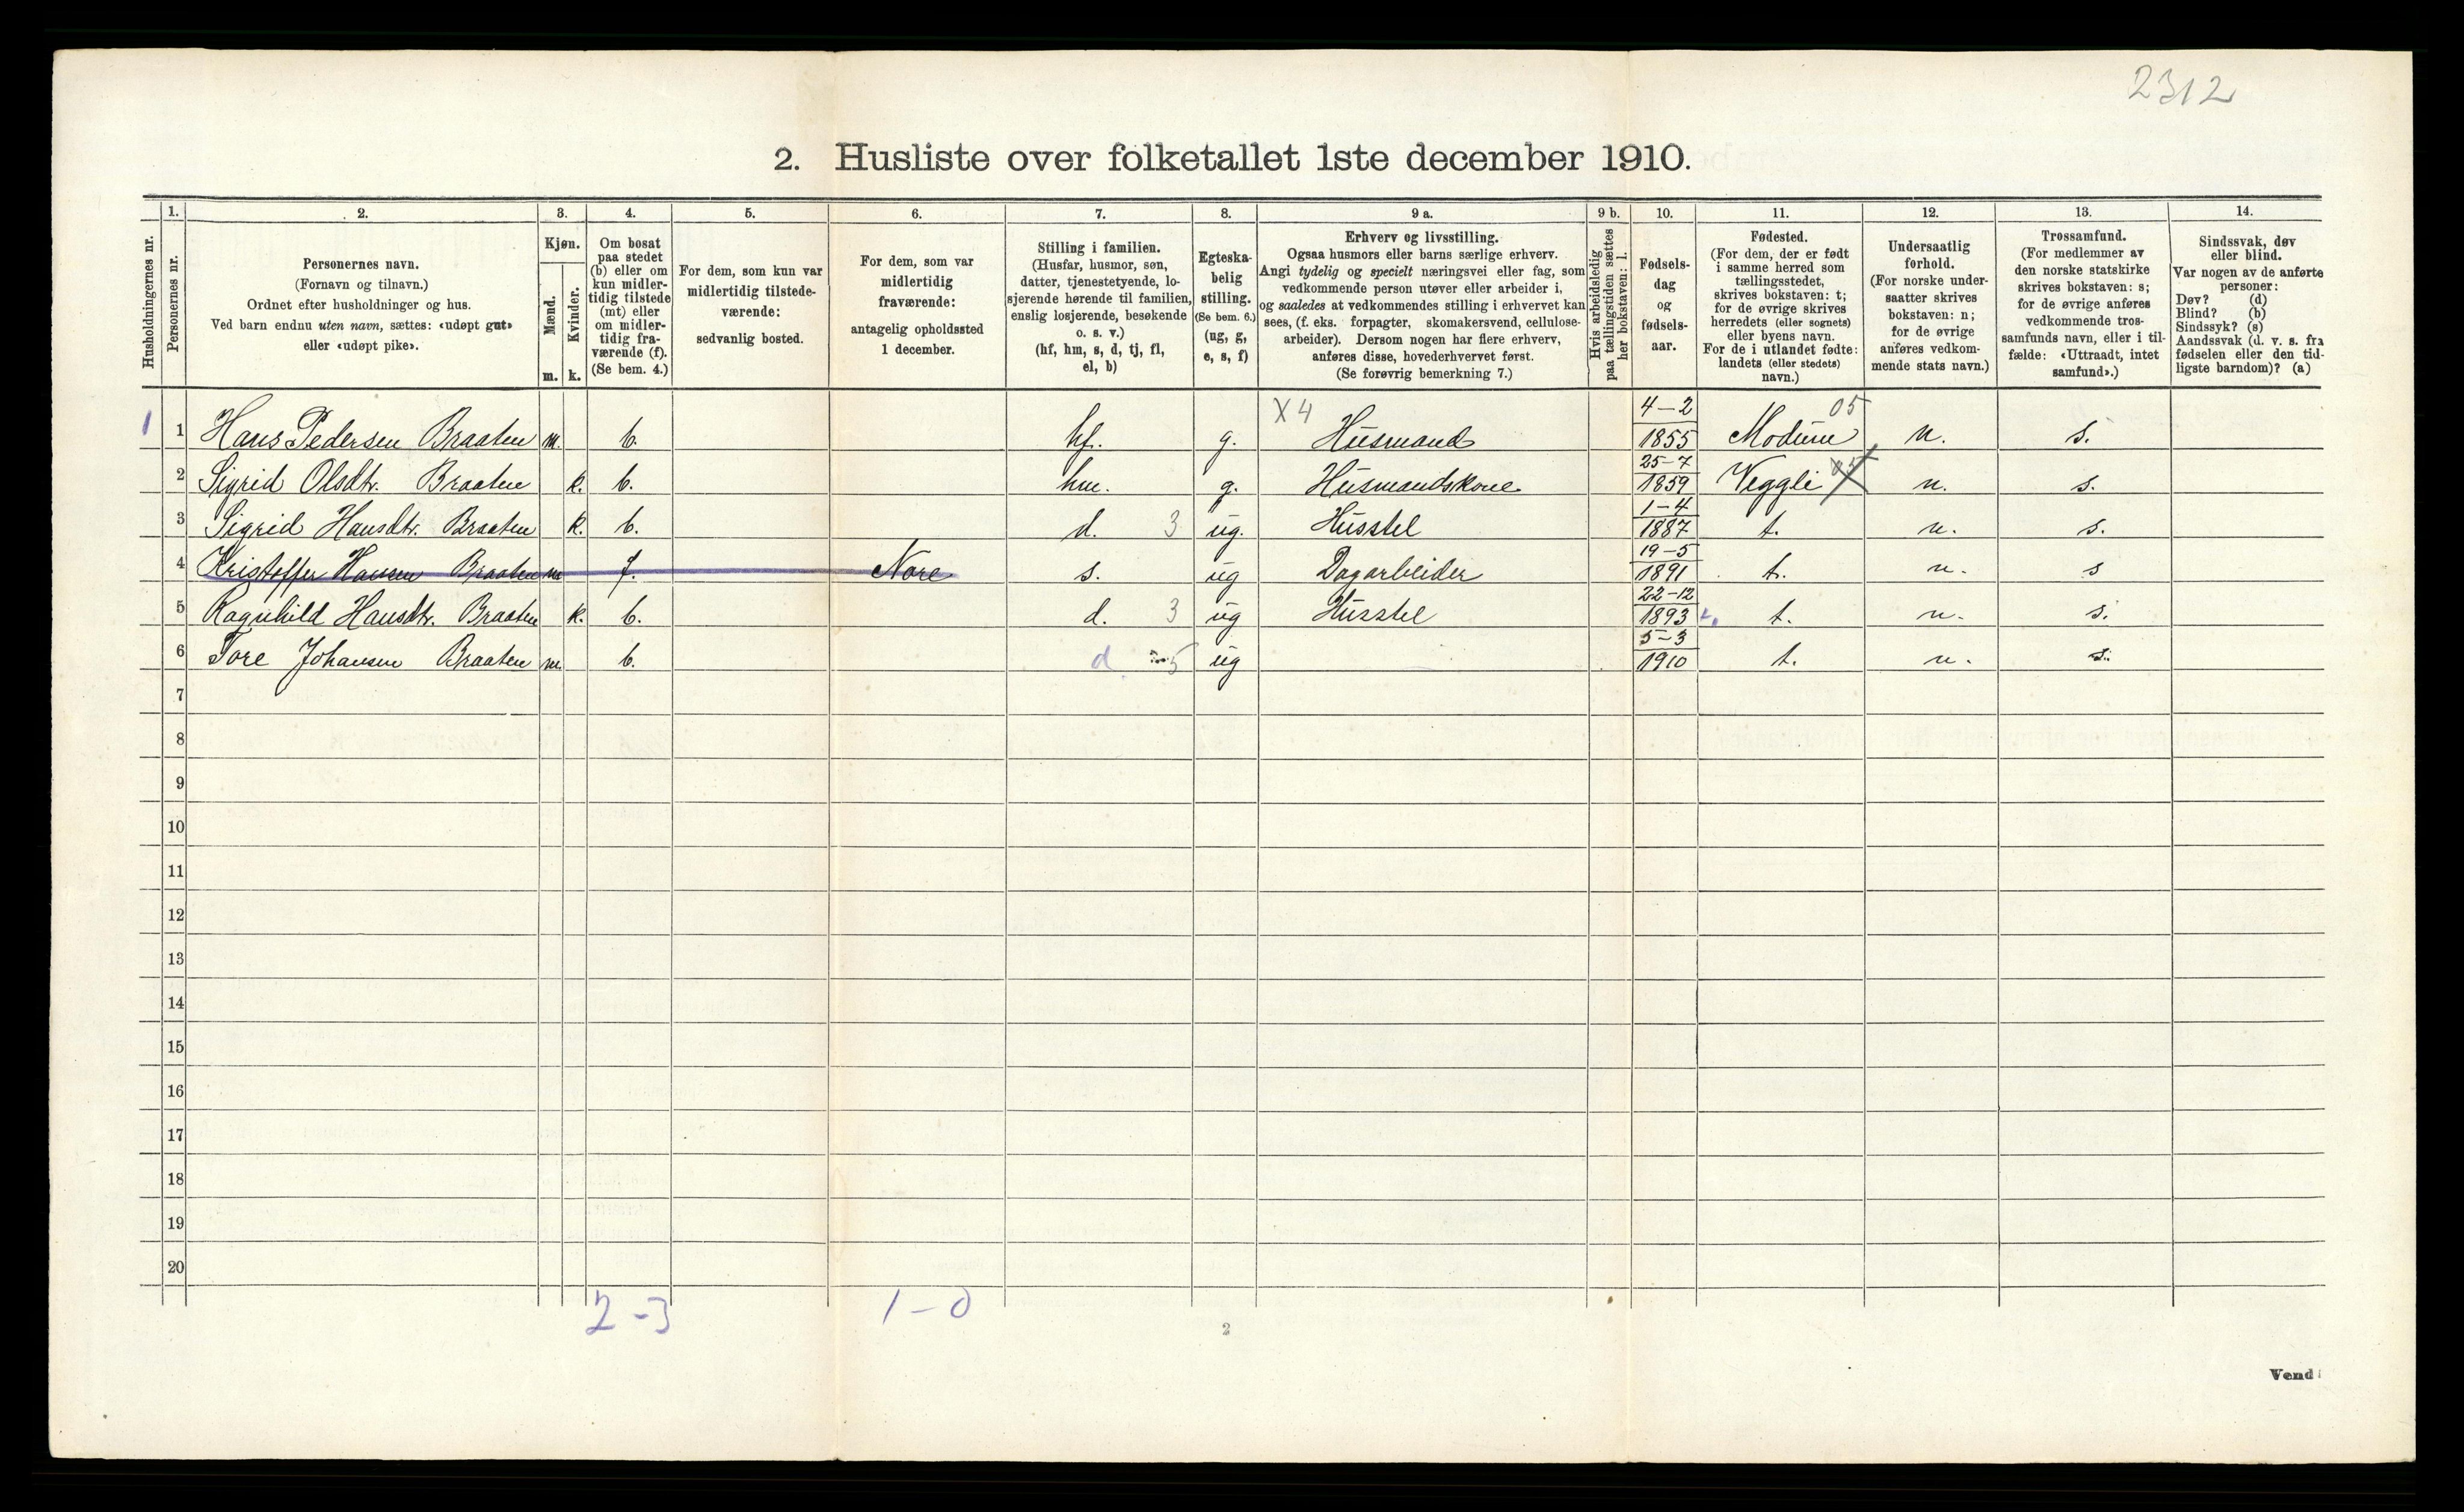 2312
2. Husliste over folketallet 1ste december 1910.
Husholdningernes nr.
1.
Personernes nr.
2.
Personernes navn.
(Fornavn og tilnavn.)
Ordnet efter husholdninger og hus.
Ved barn endnu uten navn, sættes: «udøpt gut»
eller «udøpt pike».
3.
Kjøn.
Mænd.
Kvinder.
m. k.
4.
Om bosat
paa stedet
(b) eller om
kun midler-
tidig tilstede
(mt) eller
om midler-
tidig fra-
værende (f).
(Se bem. 4.)
5.
For dem, som kun var
midlertidig tilstede-
værende:
sedvanlig bosted.
6.
For dem, som var
midlertidig
fraværende:
antagelig opholdssted
1 december.
7.
Stilling i familien.
(Husfar, husmor, søn,
datter, tjenestetyende, lo-
sjerende hørende til familien,
enslig losjerende, besøkende
o. s. v.)
(hf, hm, s, d, tj, fl,
el, b)
8.
Egteska-
belig
stilling.
(Se bem. 6.)
(ug, g,
e, s, f)
9 a.
Erhverv og livsstilling.
Ogsaa husmors eller barns særlige erhverv.
Angi tydelig og specielt næringsvei eller fag, som
vedkommende person utøver eller arbeider i,
og saaledes at vedkommendes stilling i erhvervet kan
sees, (f. eks. forpagter, skomakersvend, cellulose-
arbeider). Dersom nogen har flere erhverv,
anføres disse, hovederhvervet først.
(Se forøvrig bemerkning 7.)
9 b.
Hvis arbeidsledig
paa tællingstiden sættes
her bokstaven: l.
10.
Fødsels-
dag
og
fødsels-
aar.
11.
Fødested.
(For dem, der er født
i samme herred som
tællingsstedet,
skrives bokstaven: t;
for de øvrige skrives
herredets (eller sognets)
eller byens navn.
For de i utlandet fødte:
landets (eller stedets)
navn.)
12.
Undersaatlig
forhold.
(For norske under-
saatter skrives
bokstaven: n;
for de øvrige
anføres vedkom-
mende stats navn.)
13.
Trossamfund.
(For medlemmer av
den norske statskirke
skrives bokstaven: s;
for de øvrige anføres
vedkommende tros-
samfunds navn, eller i til-
fælde: «Uttraadt, intet
samfund».)
14.
Sindssvak, døv
eller blind.
Var nogen av de anførte
personer:
Døv? (d)
Blind? (b)
Sindssyk? (s)
Aandssvak (d. v. s. fra
fødselen eller den tid-
ligste barndom)? (a)
1 1 Hans Pedersen Braaten m. b. hf. g. X 4 Husmand 4-2 1855 Modum 05 n. s.
2 Sigrid Olsdtr. Braaten k. b. hm. g. Husmandskone 25-7 1859 Veggli 05 n. s.
3 Sigrid Hansdtr. Braaten k. b. d. 3 ug. Husstel 1-4 1887 t. n. s.
4 Kristoffer Hansen Braaten m f. Nore s. ug Dagarbeider 19-5 1891 t. n. s
5 Ragnhild Hansdtr. Braaten k. b. d. 3 ug Husstel 22-12 1893 t. n. s.
6 Tore Johansen Braaten m. b. d 5 ug 5-3 1910 t. n. s.
7
8
9
10
11
12
13
14
15
16
17
18
19
20
2-3
1-0
2
Vend!